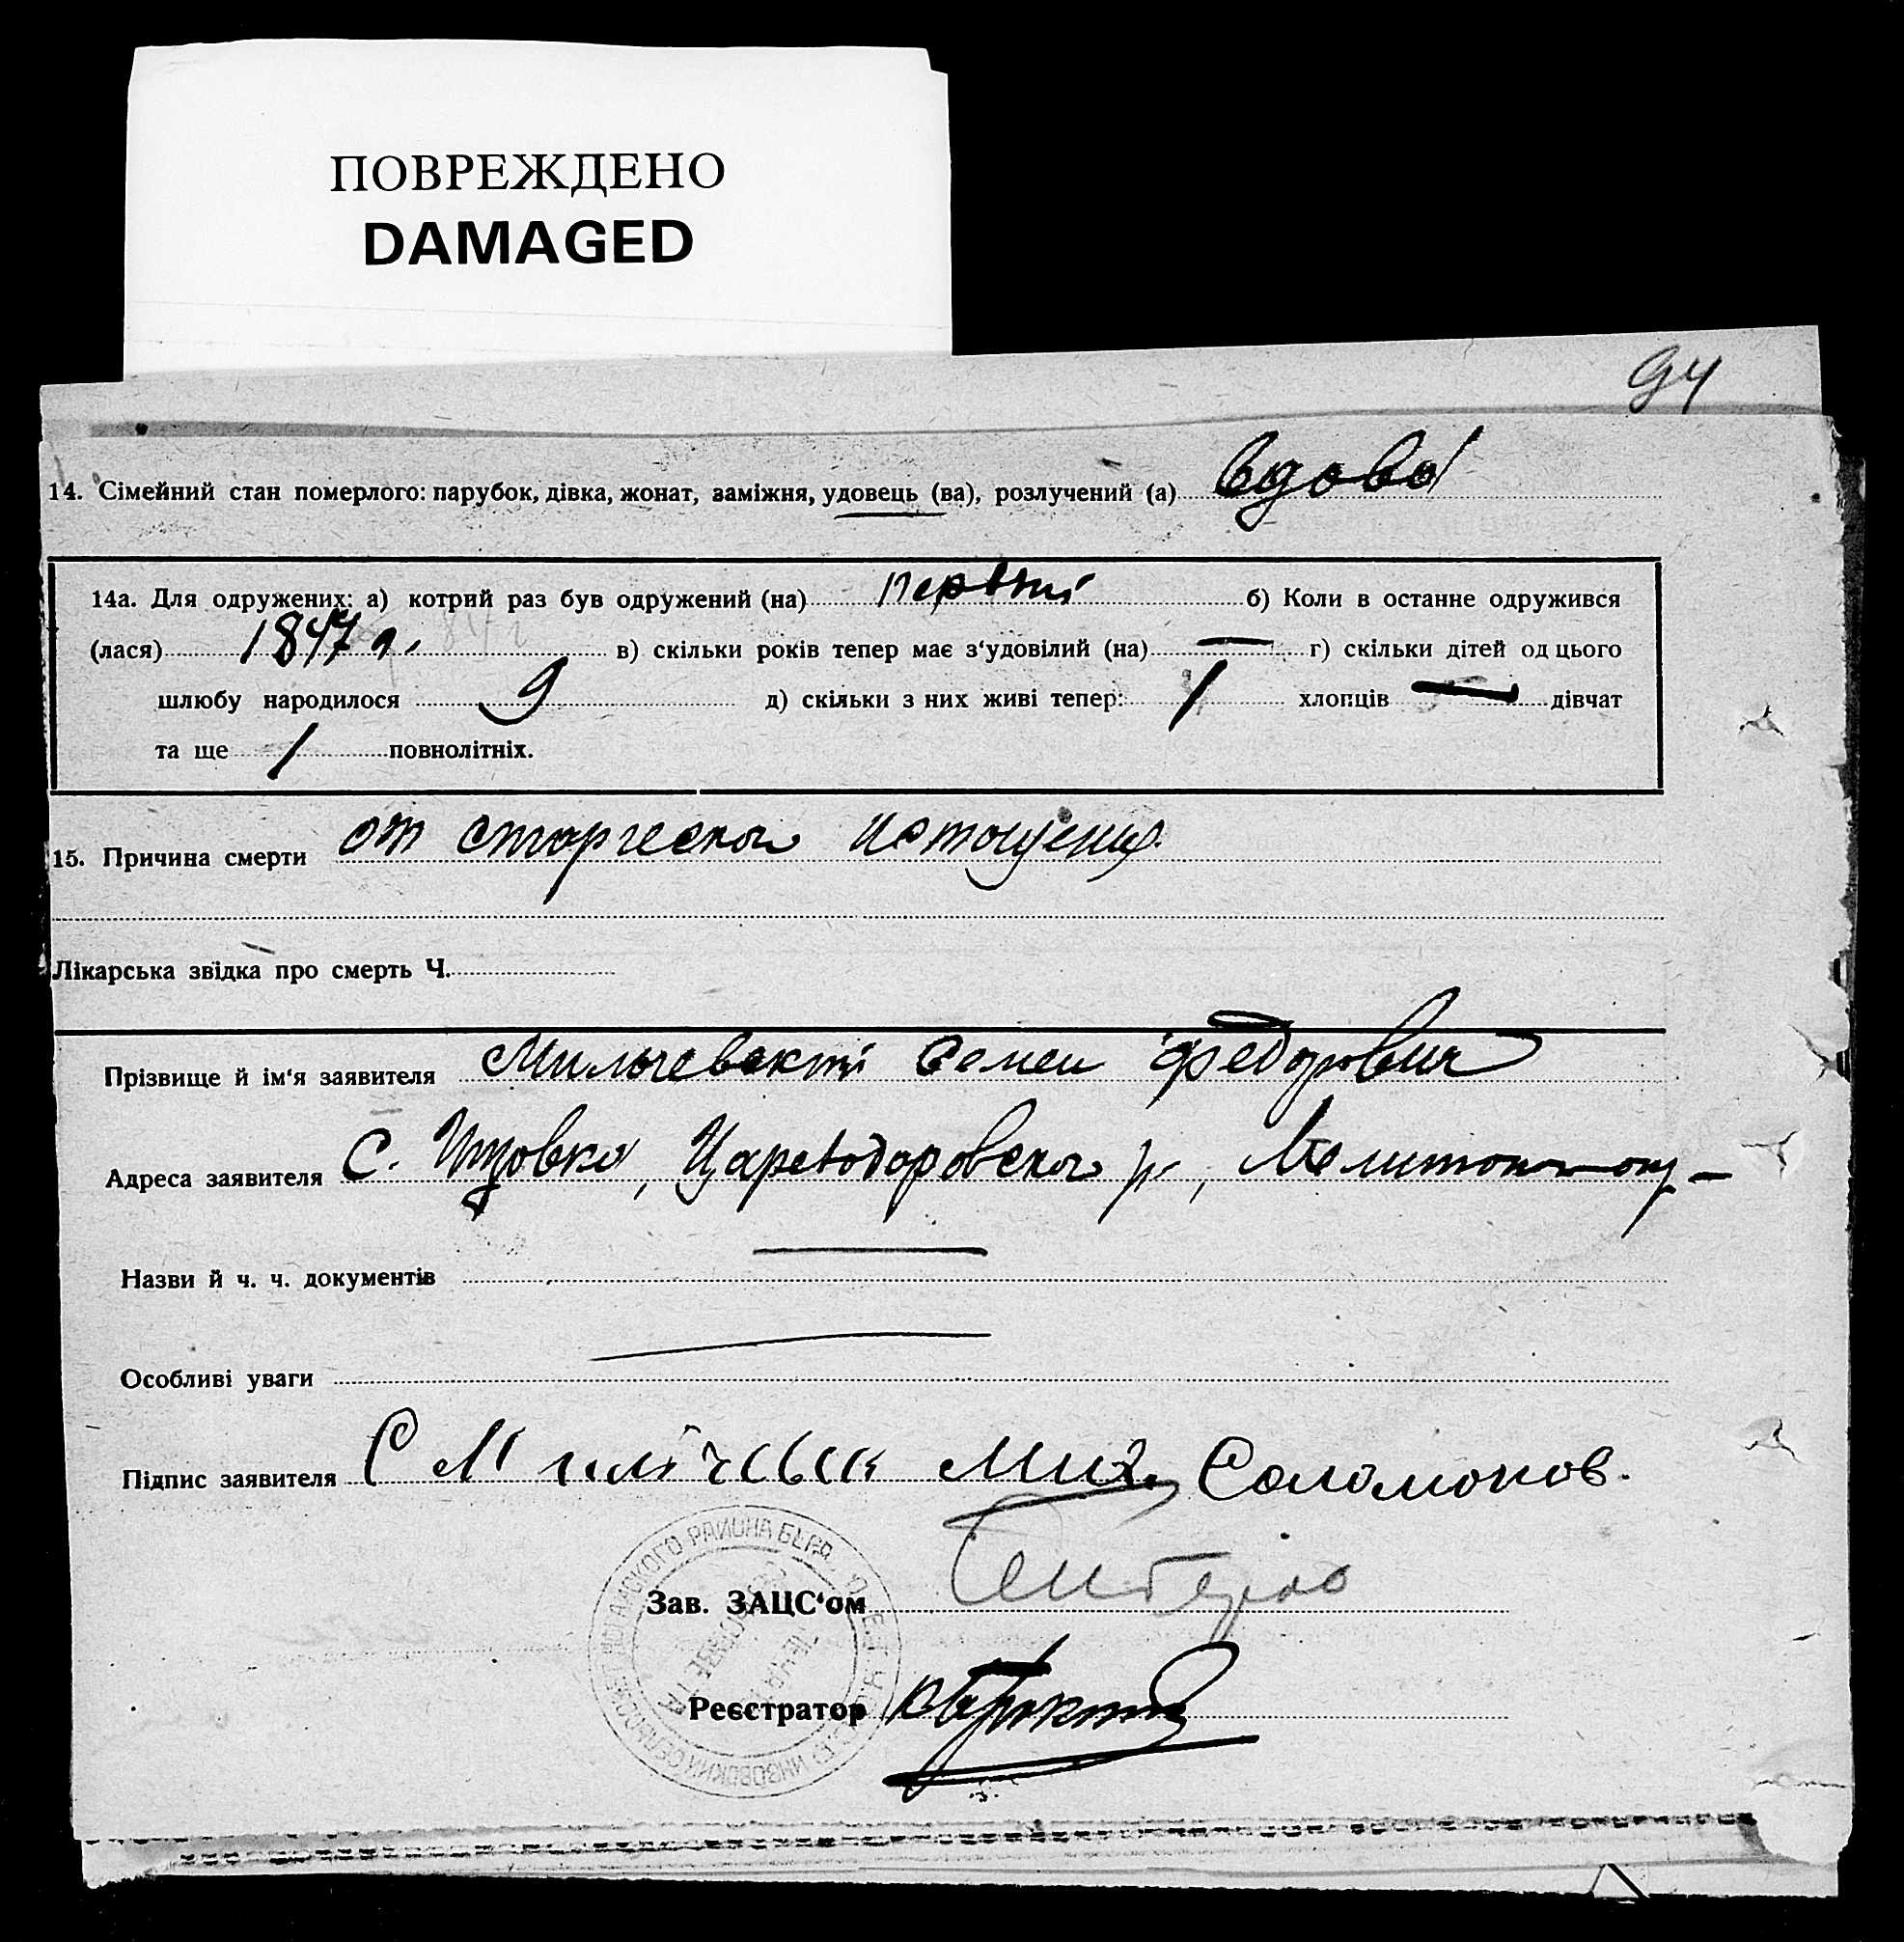 ПОВРЕЖДЕНО
DAMAGED
94
14. Сімейний стан померлого: парубок, дівка, жонат, заміжня, удовець (ва), розлучений (а) вдова
14а. Для одружених: а) котрий раз був одружений (на) первый б) Коли в останне одружився
(лася) 1847 г. в) скільки років тепер має з'удовілий (на) — г) скільки дітей од цього
шлюбу народилося 9 д) скільки з них живі тепер: 1 хлопців — дівчат
та ще 1 повнолітніх.
15. Причина смерти от старческого истощения
Лікарська звідка про смерть Ч.
Прізвище й ім'я заявителя Мильчевский Семен Федорович
Адреса заявителя С. Цареводаровского р.,
Назви й ч. ч. документів —
Особливі уваги —
Підпис заявителя С Мих. Соломонов.
Зав. ЗАЦС'ом
Реєстратор